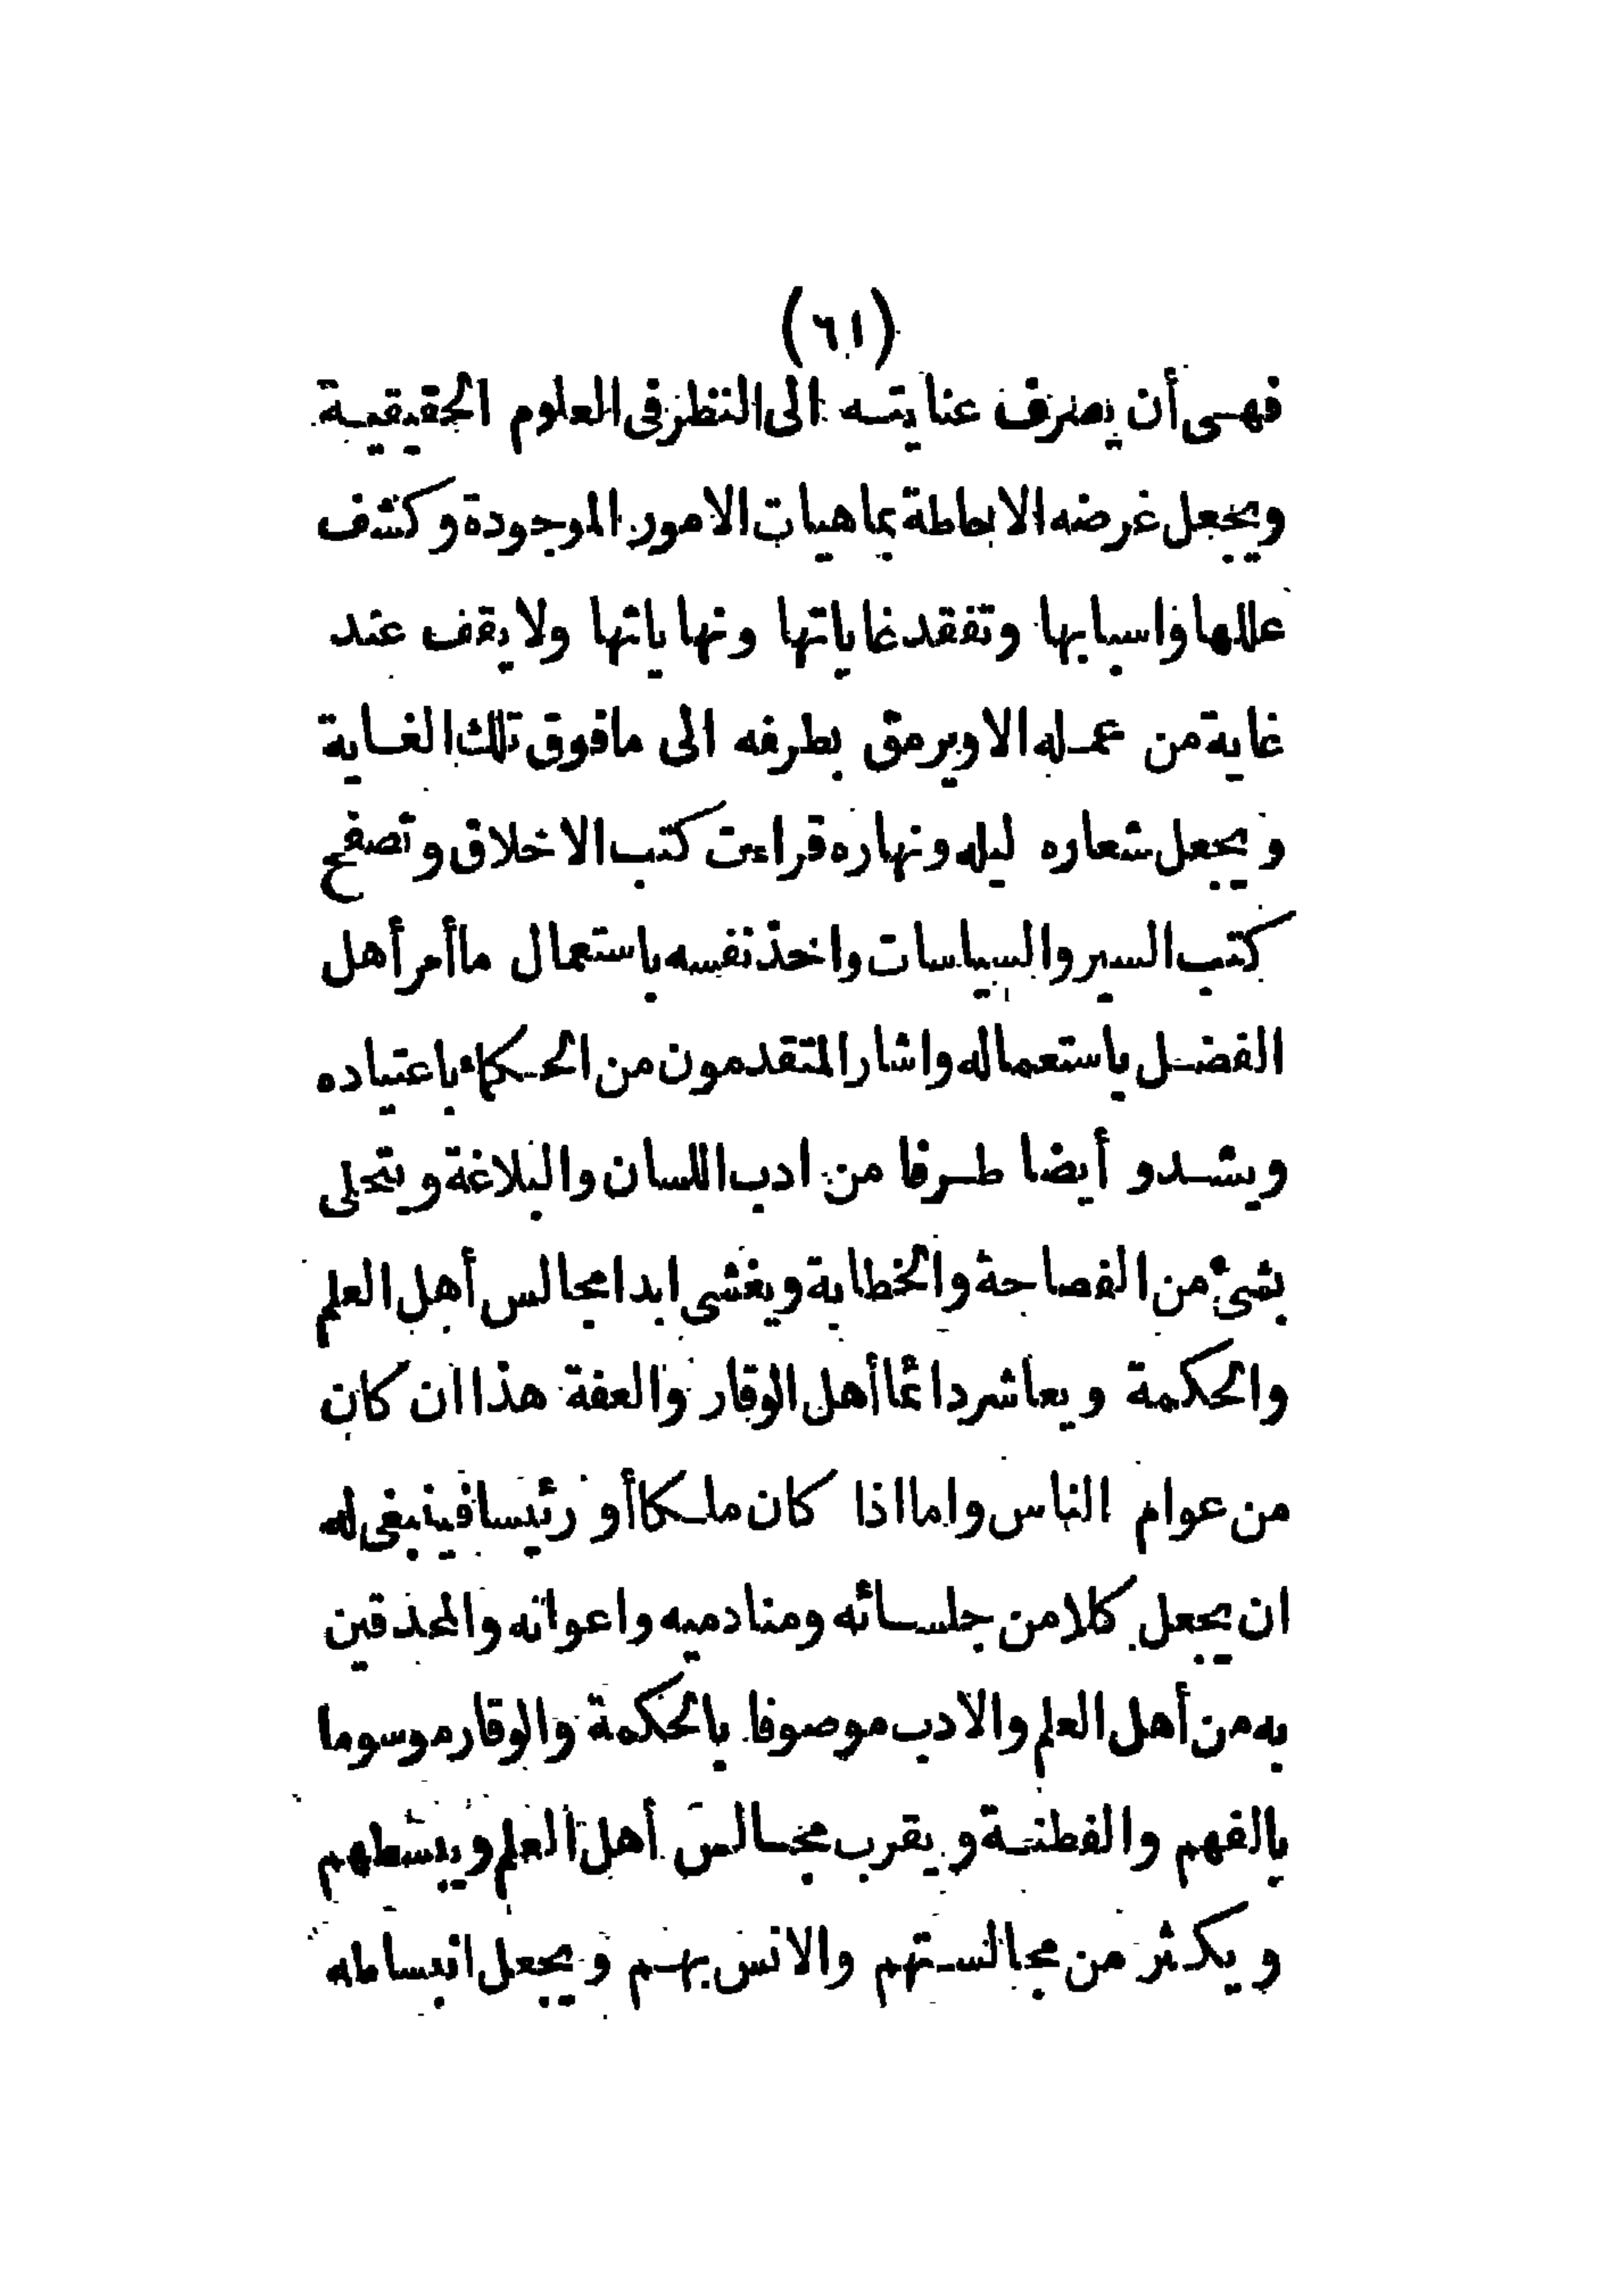 (٦١)
فهى أن يصرف عنايته الى النظر فى العلوم الحقيقية
ويجعل غرضه الاحاطة بماهيات الامور الموجودة وكشف
عللها واسبابها وتفقد غاياتها ونهاياتها ولا يقف عند
غاية من عمله الا ويرمق بطرفه الى ما فوق تلك الغاية
ويجعل شعاره ليله ونهاره قراءت كتب الاخلاق وتصفح
كتب السير والسياسات واخذ نفسه باستعمال ما أمر أهل
الفضل باستعماله واشار المتقدمون من الحكماء باعتياده
ويشدو أيضا طرفا من ادب اللسان والبلاغة ويتحلى
بشئ من الفصاحة والخطابة ويغشى ابدا مجالس أهل العلم
والحكمة ويعاشر دائما أهل الوقار والعفة هذا ان كان
من عوام الناس واما اذا كان ملكا أو رئيسا فينبغى له
ان يجعل كلا من جلسائه ومنادميه واعوانه والمحذقين
به من أهل العلم والادب موصوفا بالحكمة والوقار موسوما
بالفهم والفطنة ويقرب مجالس أهل العلم ويبسطهم
ويكثر من مجالستهم والانس بهم ويجعل انبساطه